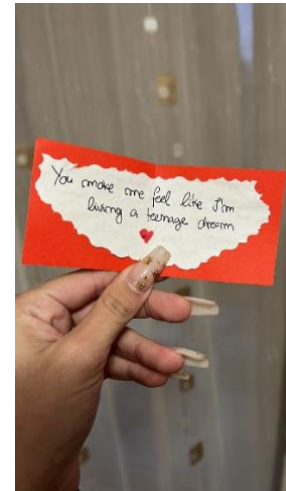 You make me feel like I'm
living a teenage dream